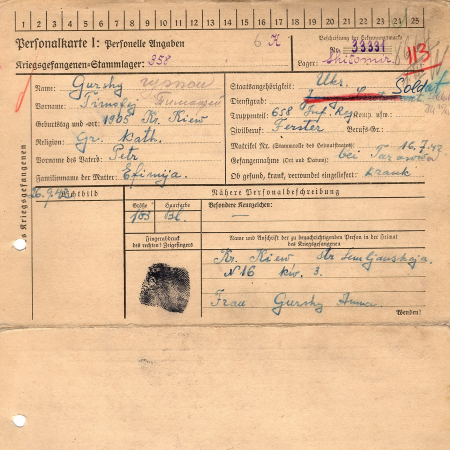 1 2 3 4 5 6 7 8 9 10 11 12 13 14 15 16 17 18 19 20 21 22 23 24 25
Personalkarte I: Personelle Angaben
6 K
Beschriftung der Erkennungsmarke
Nr. 33331
113
Kriegsgefangenen-Stammlager: 358
Lager: Shitomir
des Kriegsgefangenen
Name: Gursky
Vorname: Timofej Тимофей
Geburtstag und -ort: 1905 Kr. Kiew
Religion: Gr. Kath.
Vorname des Vaters: Petr.
Familienname der Mutter: Efimija.
Staatsangehörigkeit: Ukr.
Dienstgrad: Soldat
Truppenteil: 658 Inf. Reg. Komp. usw.:
Zivilberuf: Berufs-Gr.:
Matrikel Nr. (Stammrolle des Heimatstaates):
Gefangennahme (Ort und Datum): 16.7.42 bei
Ob gesund, krank, verwundet eingeliefert: krank
Lichtbild
Nähere Personalbeschreibung
Größe
Haarfarbe
Besondere Kennzeichen:
163
bl.
—
Fingerabdruck
des rechten! Zeigefingers
Name und Anschrift der zu benachrichtigenden Person in der Heimat
des Kriegsgefangenen
Kr. Kiew Str Semljanskaja.
N 16 kw. 3.
Frau Gursky Anna.
Wenden!